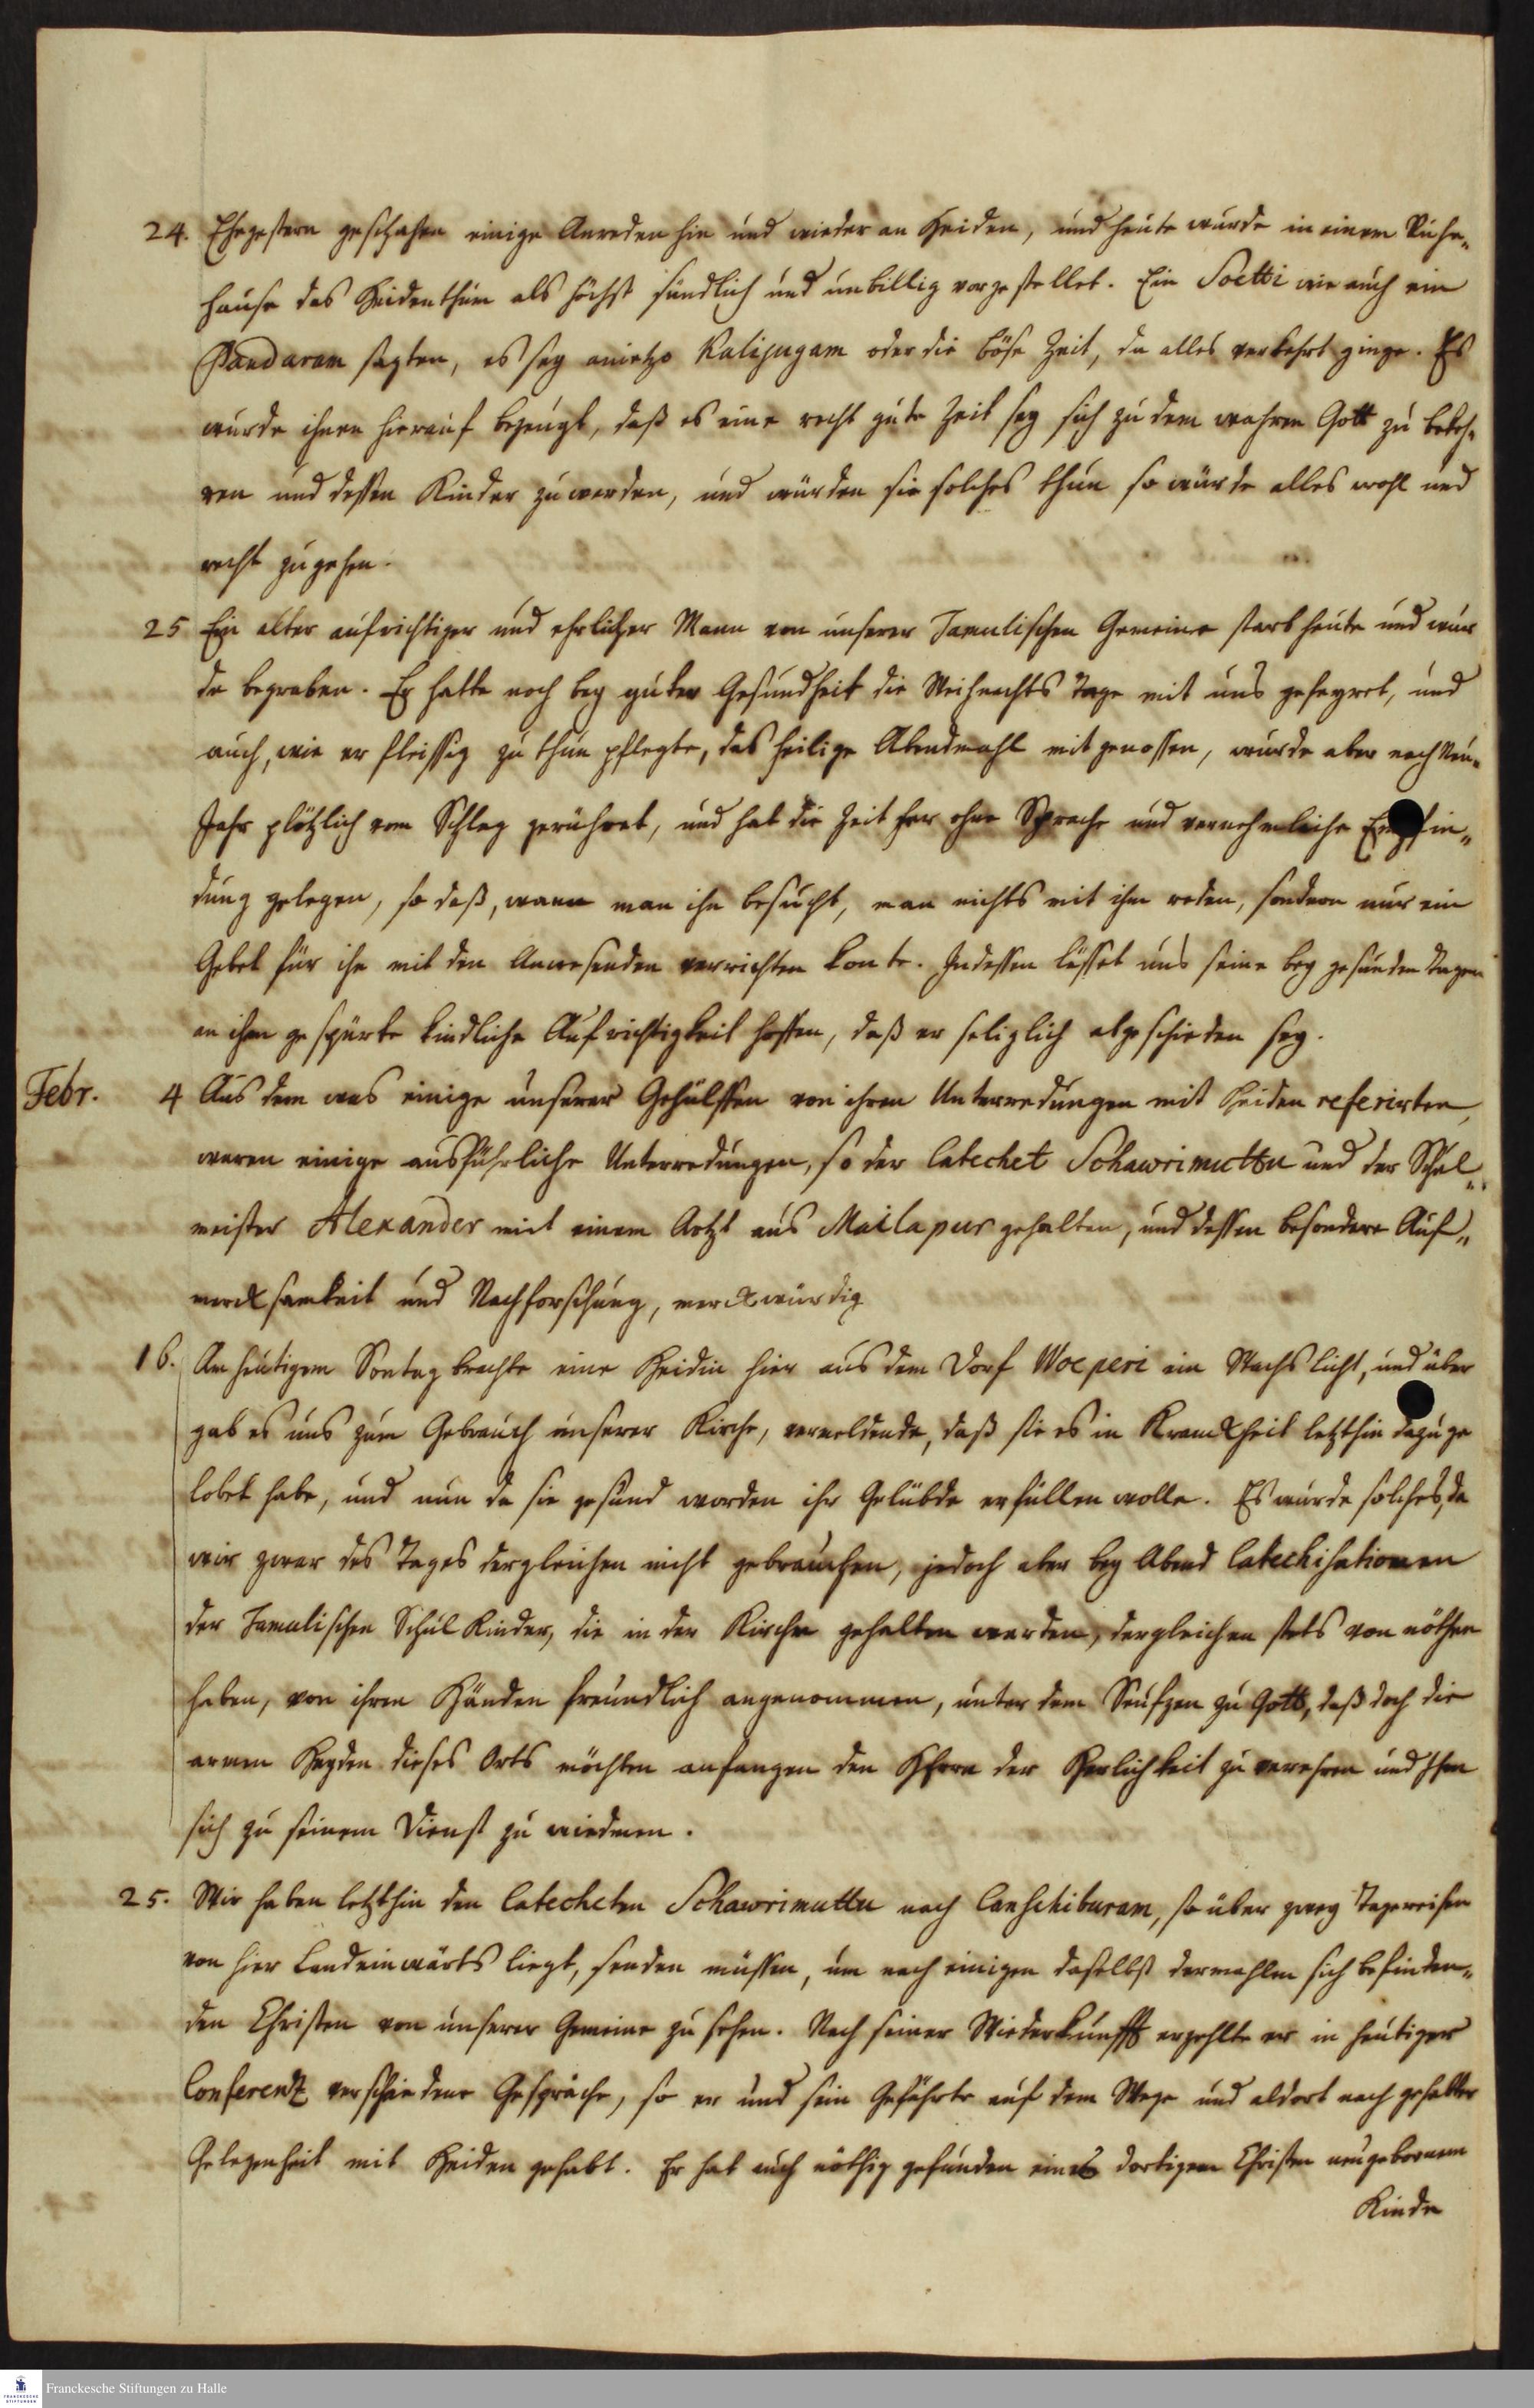 24. Ehegestern geschahen einige Anreden hin und wieder an Heiden, und heute wurde in einem Ruhe-
hause das Heidenthum als höchst sündlich und unbillig vorgestellet. Ein Soetti wie auch ein
Pandaram sagten, es sey anietzo Kalijugam oder die böse Zeit, da alles verkehrt ginge. Es
wurde ihnen hierauf bezeugt, daß es eine recht gute Zeit sey sich zu dem wahren Gott zu bekeh-
ren und dessen Kinder zu werden, und würden sie solches thun so würde alles wohl und
recht zugehen.
25 Ein alter aufrichtiger und ehrlicher Mann von unserer Tamulischen Gemeine starb heute und wur
de begraben. Er hatte noch bey guter Gesundheit die Weihnachts Tage mit uns gefeyret, und
auch, wie er fleissig zu thun pflegte, das heilige Abendmahl mit genossen, wurde aber nach Neu-
Jahr plötzlich vom Schlag gerühret, und hat die Zeit her ohne Sprache und vernehmliche Empfin-
dung gelegen, so daß, wann man ihn besucht, man nichts mit ihm reden, sondern nur ein
Gebet für ihn mit den Anwesenden verrichten konte. Indessen lässet uns seine bey gesunden Tagen
an ihm gespürte kindliche Aufrichtigkeit hoffen, daß er seliglich abgeschieden sey.
Febr. 4 Aus dem was einige unserer Gehülffen von ihren Unterredungen mit Heiden referirten,
waren einige ausführliche Unterredungen, so der Catechet Schawrimuttu und der Schul-
meister Alexander mit einem Artzt aus Mailapur gehalten, und dessen besondere Auf-
mercksamkeit und Nachforschung, merckwürdig
16. Am heutigem Sontag brachte eine Heidin hier aus dem Dorf Woeperi ein Wachs licht, und über
gab es uns zum Gebrauch unserer Kirche, vermeldende, daß sie es in Kranckheit letzthin dazu ge
lobet habe, und nun da sie gesund worden ihr Gelübde erfüllen wolle. Es wurde solches, da
wir zwar des Tages dergleichen nicht gebrauchen, jedoch aber bey Abend Catechisationen
der Tamulischen Schul Kinder, die in der Kirche gehalten werden, dergleichen stets von nöthen
haben, von ihren Händen freundlich angenommen, unter dem Seufzen zu Gott, daß doch die
armen Heyden dieses Orts möchten anfangen den HErrn der Herlichkeit zu verehren und Ihm
sich zu seinem Dienst zu wiedmen.
25. Wir haben letzthin den Catecheten Schawrimuttu nach Canschiburam, so über zwey Tagereisen
von hier Landeinwärts liegt, senden müssen, um nach einigen daselbst dermahlen sich befinden-
den Christen von unserer Gemeine zu sehen. Nach seiner Wiederkunfft erzehlte er in heutiger
Conferentz verschiedene Gespräche, so er und sein Gefährte auf dem Wege und aldort nach gehabter
Gelegenheit mit Heiden gehabt. Er hat auch nöthig gefunden eines dortigen Christen neugebornem
Kinde
Franckesche Stiftungen zu Halle